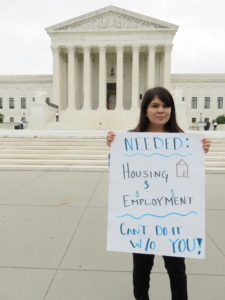 NEEDED:
HOUSING
&
EMPLOYMENT
CAN'T DO IT
W/O YOU!